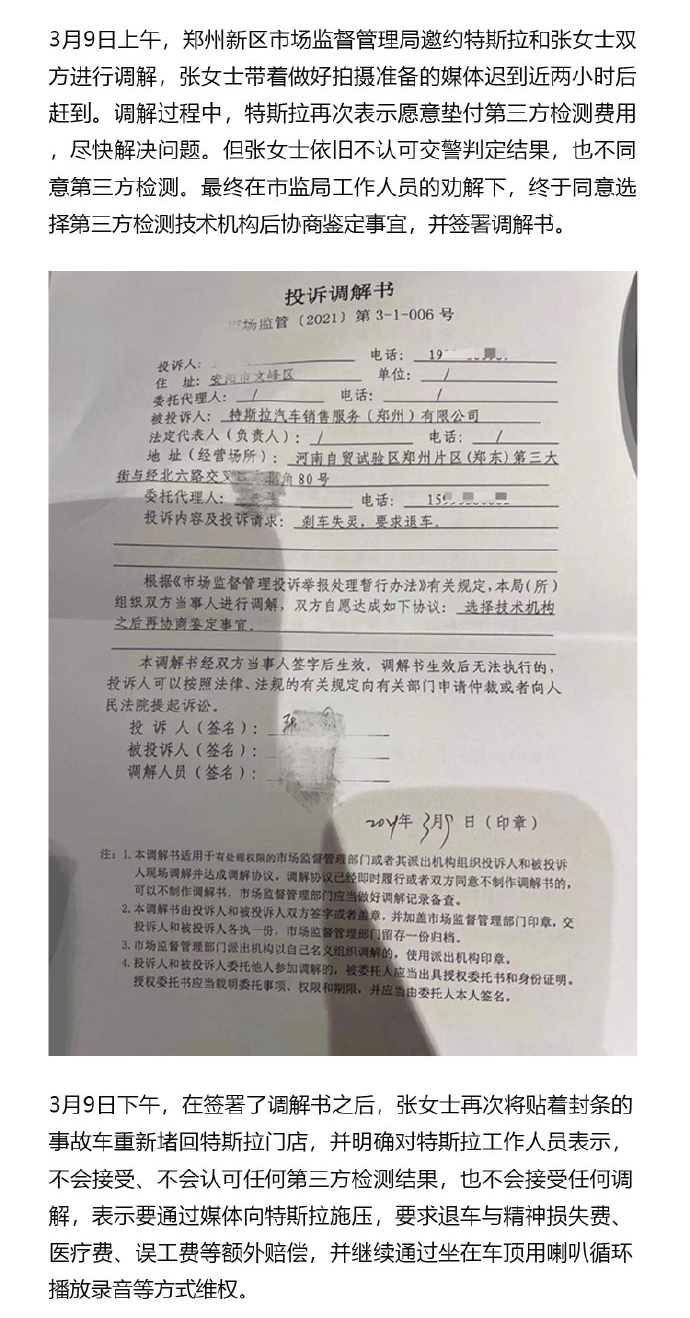 3月9日上午，郑州新区市场监督管理局邀约特斯拉和张女士双
方进行调解，张女士带着做好拍摄准备的媒体迟到近两小时后
赶到。调解过程中，特斯拉再次表示愿意垫付第三方检测费用
，尽快解决问题。但张女士依旧不认可交警判定结果，也不同
意第三方检测。最终在市监局工作人员的劝解下，终于同意选
择第三方检测技术机构后协商鉴定事宜，并签署调解书。
投诉调解书
市场监管〔2021〕第 3-1-006 号
投诉人： 电话： 19
住 址： 安阳市文峰区 单位： /
委托代理人： / 电话： /
被投诉人： 特斯拉汽车销售服务（郑州）有限公司
法定代表人（负责人）： / 电话： /
地 址（经营场所）： 河南自贸试验区郑州片区(郑东)第三大
街与经北六路交叉 角 80 号
委托代理人： 电话： 15
投诉内容及投诉请求： 刹车失灵，要求退车。
根据《市场监督管理投诉举报处理暂行办法》有关规定，本局（所）
组织双方当事人进行调解，双方自愿达成如下协议： 选择技术机构
之后再协商鉴定事宜。
本调解书经双方当事人签字后生效。调解书生效后无法执行的，
投诉人可以按照法律、法规的有关规定向有关部门申请仲裁或者向人
民法院提起诉讼。
投 诉 人（签名）： 张
被投诉人（签名）：
调解人员（签名）：
2021年 3月9 日（印章）
注：1. 本调解书适用于有处理权限的市场监督管理部门或者其派出机构组织投诉人和被投诉
人现场调解并达成调解协议。调解协议已经即时履行或者双方同意不制作调解书的，
可以不制作调解书。市场监督管理部门应当做好调解记录备查。
2. 本调解书由投诉人和被投诉人双方签字或者盖章，并加盖市场监督管理部门印章，交
投诉人和被投诉人各执一份，市场监督管理部门留存一份归档。
3. 市场监督管理部门派出机构以自己名义组织调解的，使用派出机构印章。
4. 投诉人和被投诉人委托他人参加调解的，被委托人应当出具授权委托书和身份证明。
授权委托书应当载明委托事项、权限和期限，并应当由委托人本人签名。
3月9日下午，在签署了调解书之后，张女士再次将贴着封条的
事故车重新堵回特斯拉门店，并明确对特斯拉工作人员表示，
不会接受、不会认可任何第三方检测结果，也不会接受任何调
解，表示要通过媒体向特斯拉施压，要求退车与精神损失费、
医疗费、误工费等额外赔偿，并继续通过坐在车顶用喇叭循环
播放录音等方式维权。